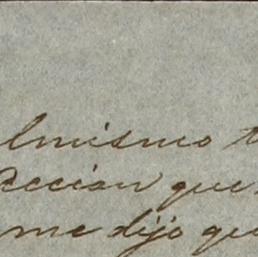 lmismo t
eccion que
me dijo qu